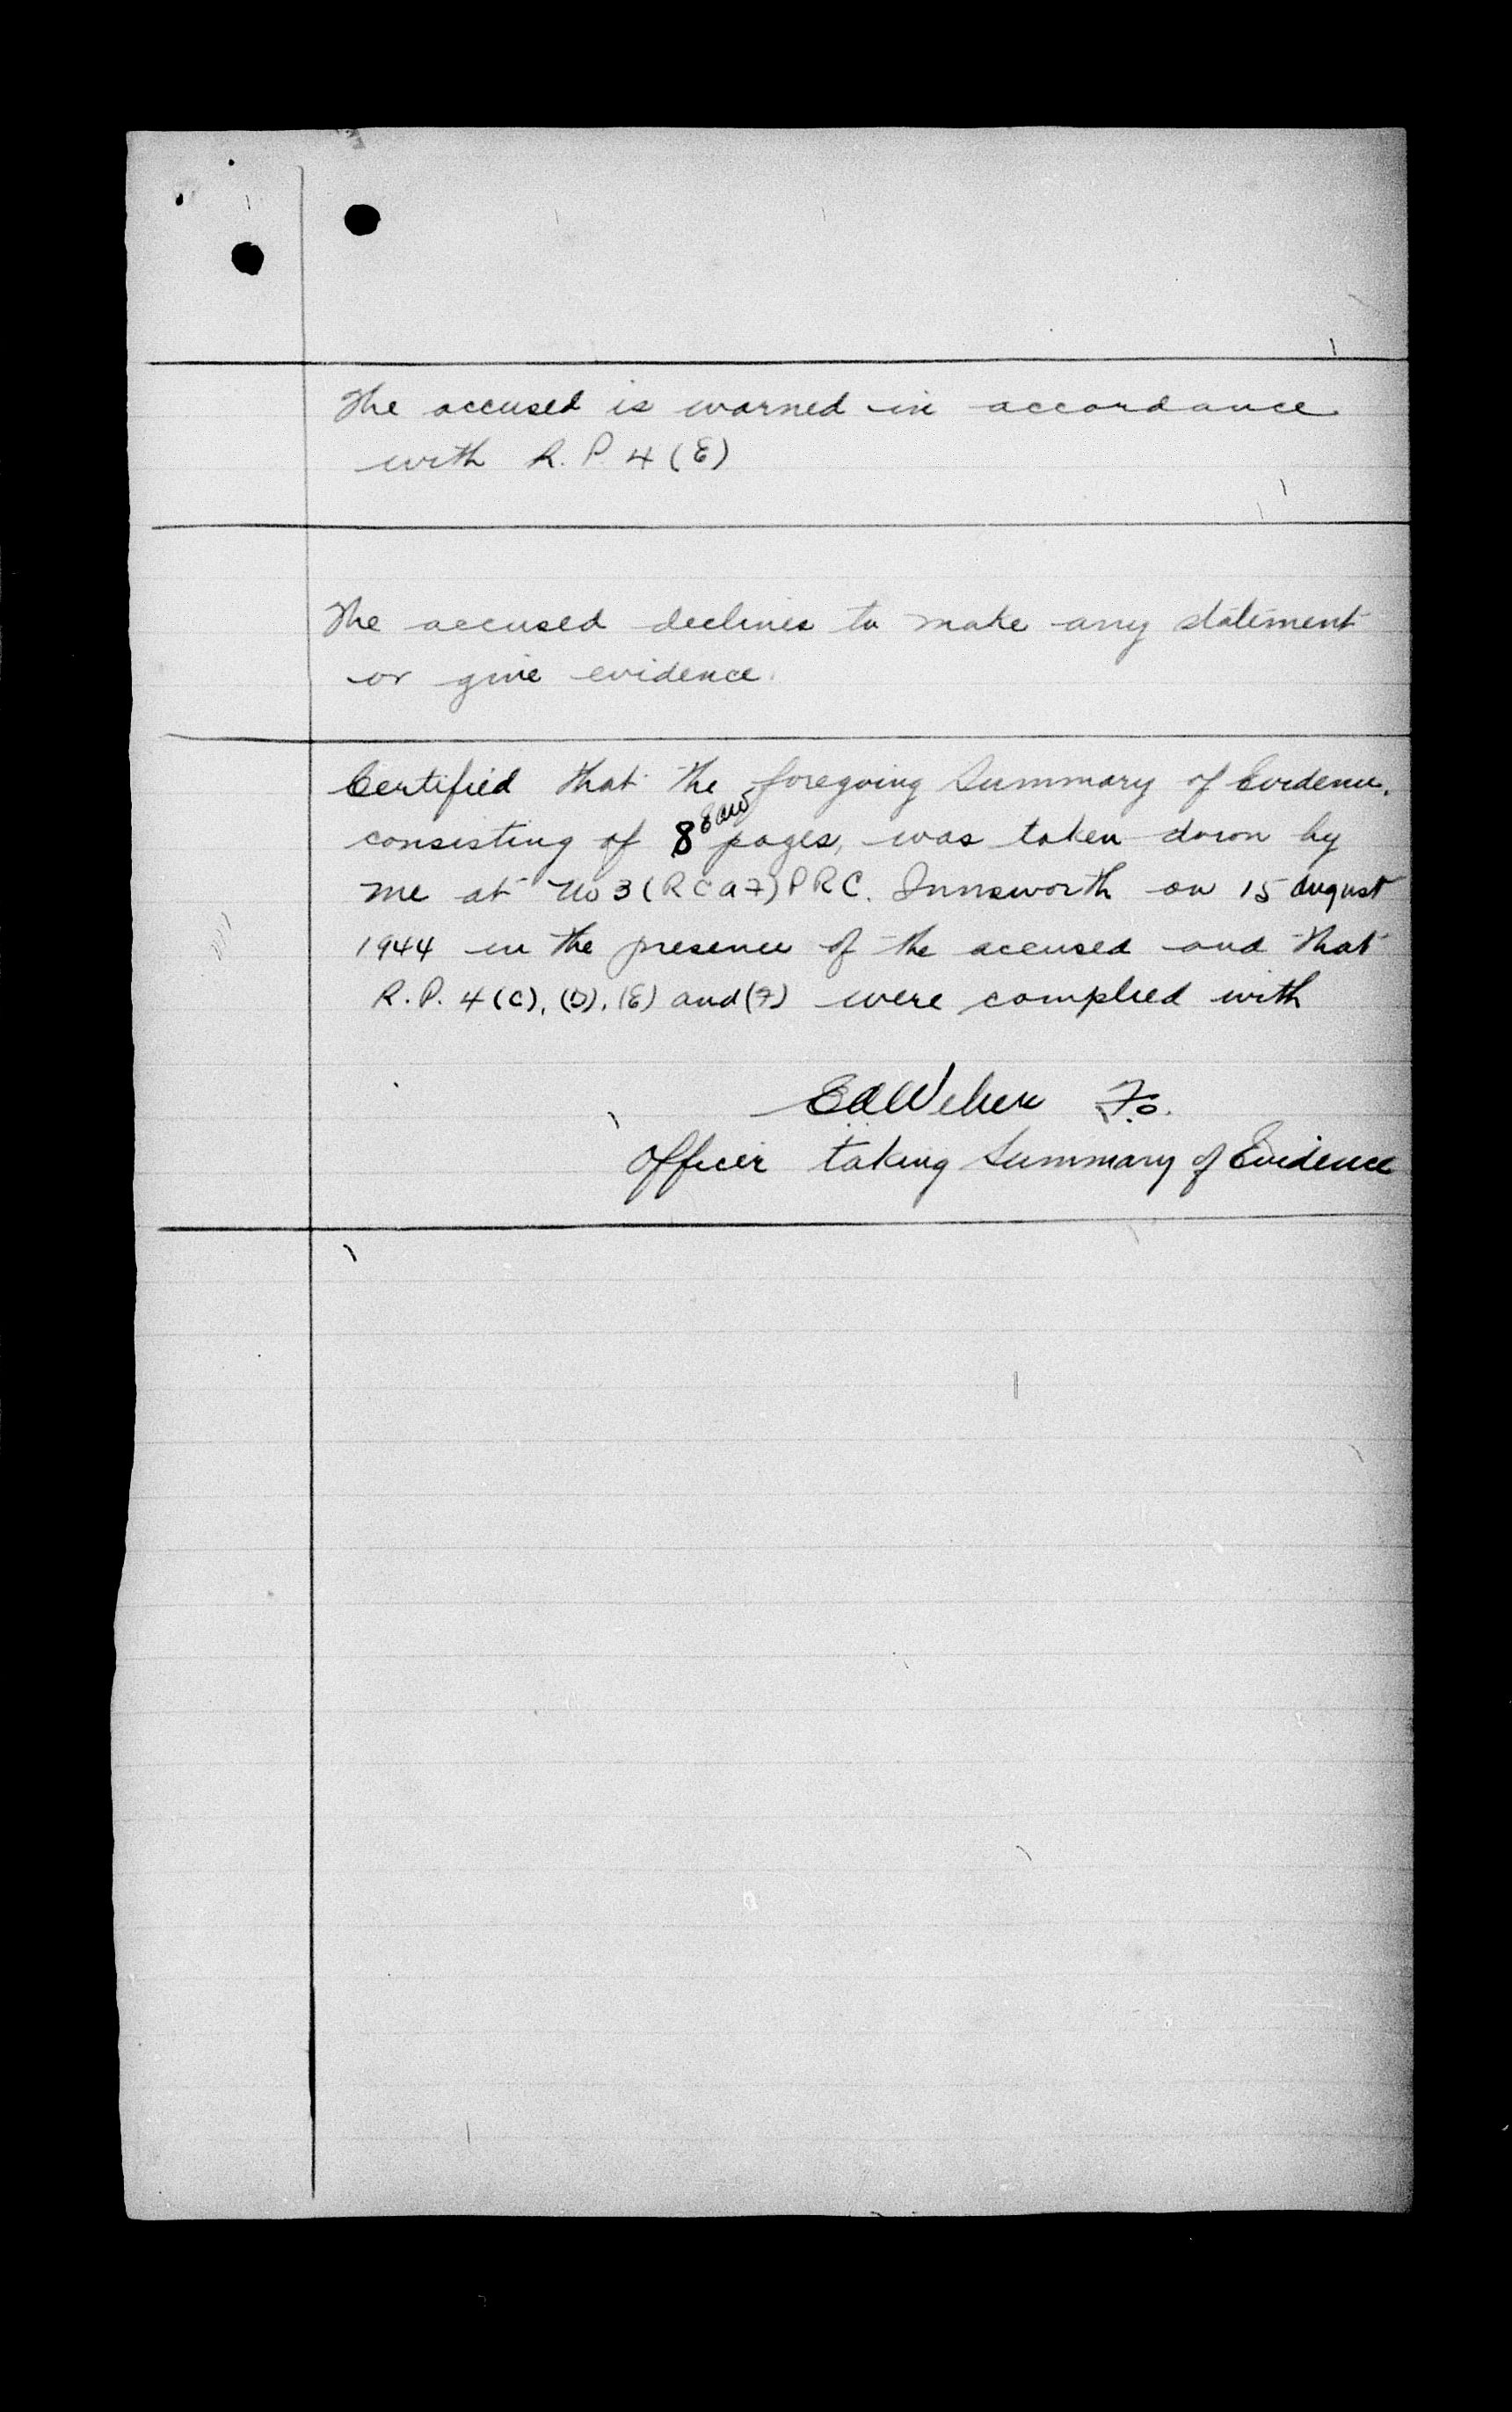 The accused is warned in accordance
with R.P. 4 (E)
The accused declines to make any statement
or give evidence.
Certified that the foregoing Summary of Evidence,
consisting of 8 pages, was taken down by
me at No 3 (RCAF) PRC. Innsworth on 15 August
1944 in the presence of the accused and that
R.P. 4 (C), (D), (E) and (F) were complied with
F/O.
Officer taking Summary of Evidence